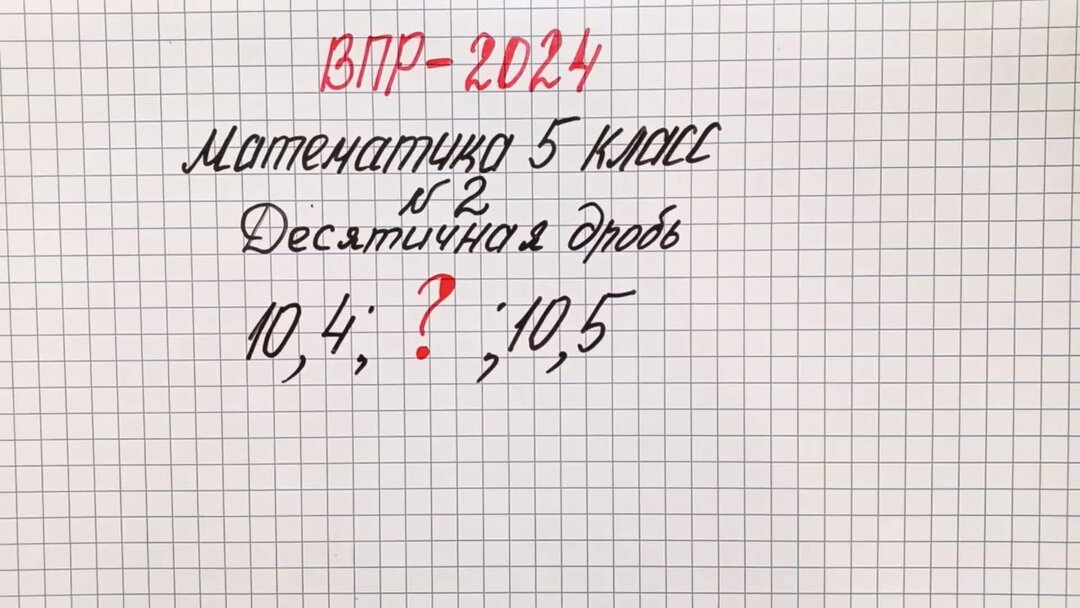 ВПР-2024
Математика 5 класс
№ 2
Десятичная дробь
10,4; ? ; 10,5